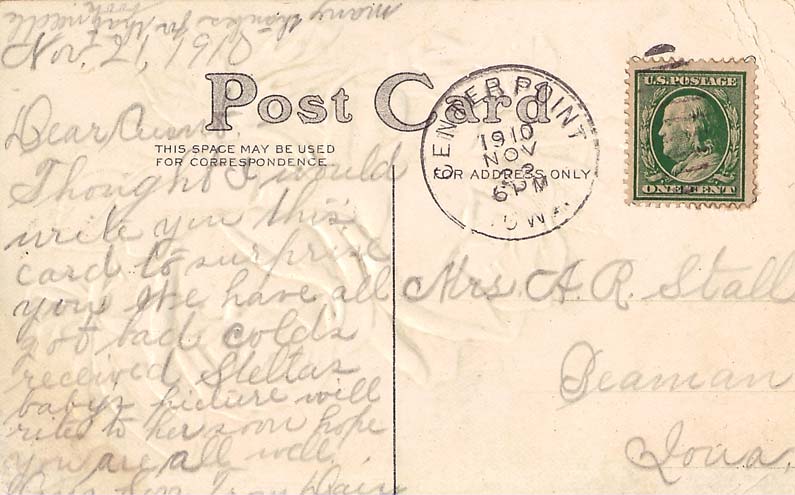 many thanks for that
Nov. 21, 1910
Post Card
THIS SPACE MAY BE USED
FOR CORRESPONDENCE
FOR ADDRESS ONLY
CENTER POINT
1910
NOV
6 PM
IOWA
U.S. POSTAGE
ONE CENT
Dear
Thought I would
write you this
card to surprise
you We have all
got bad colds
received Stellas
babys picture will
rite to her soon hope
you are all well
Mrs. A. R. Stall
Beaman
Iowa.